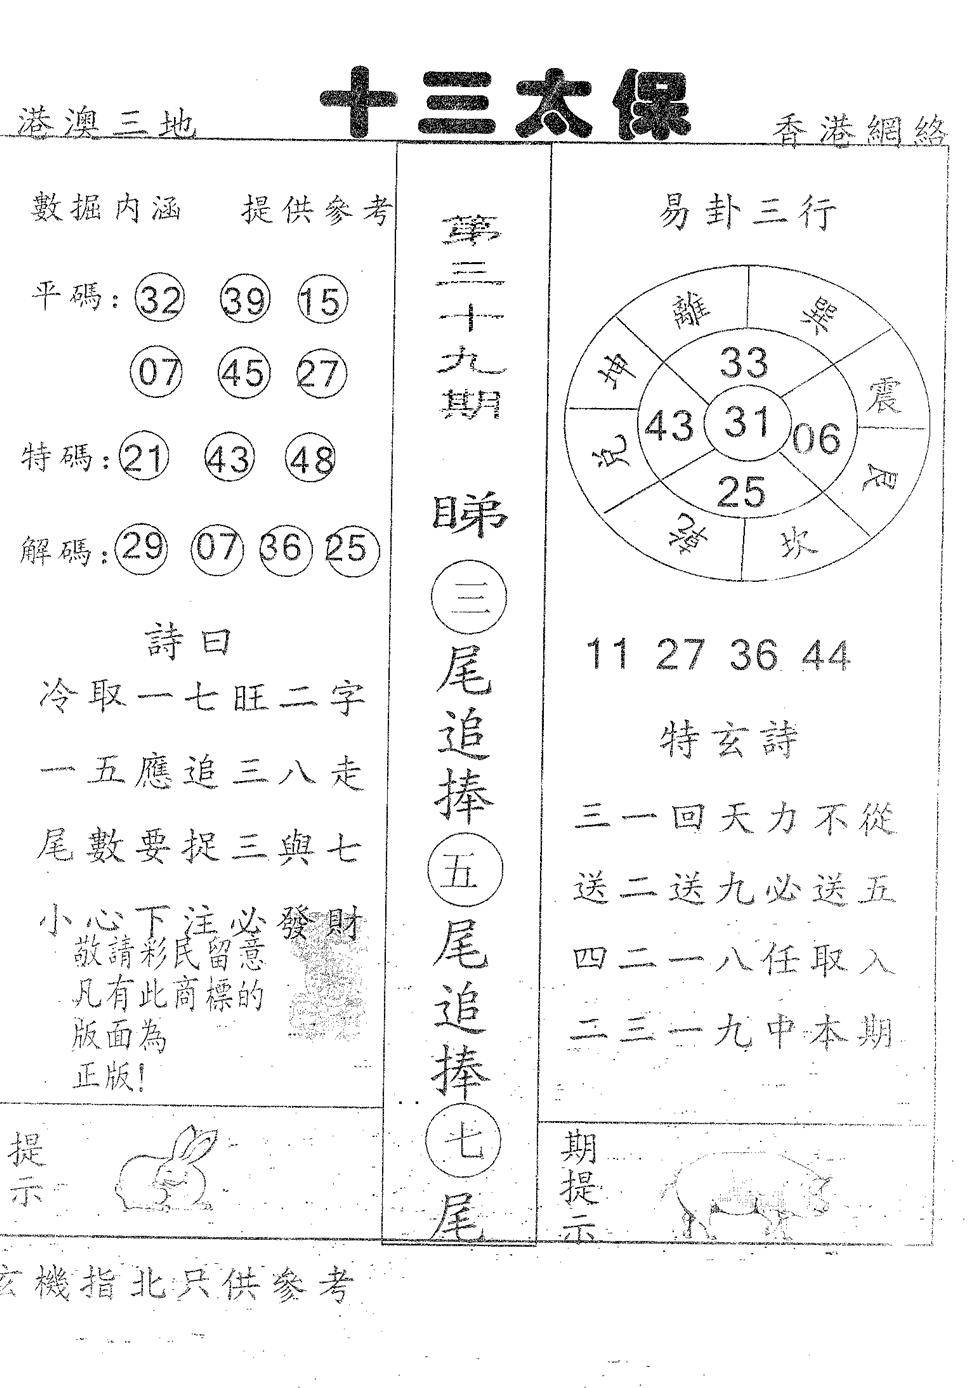 十三太保
港澳三地
香港網絡
數掘内涵 提供參考
平碼: 32 39 15
07 45 27
特碼: 21 43 48
解碼: 29 07 36 25
詩曰
冷取一七旺二字
一五應追三八走
尾數要捉三與七
小心下注必發財
敬請彩民留意
凡有此商標的
版面為
正版!
提示
第三十九期
睇三尾追捧五尾追捧七尾
易卦三行
離 巽
坤 33 震
兌 43 31 06 艮
25
乾 坎
11 27 36 44
特玄詩
三一回天力不從
送二送九必送五
四二一八任取入
二三一九中本期
期提示
玄機指北只供參考